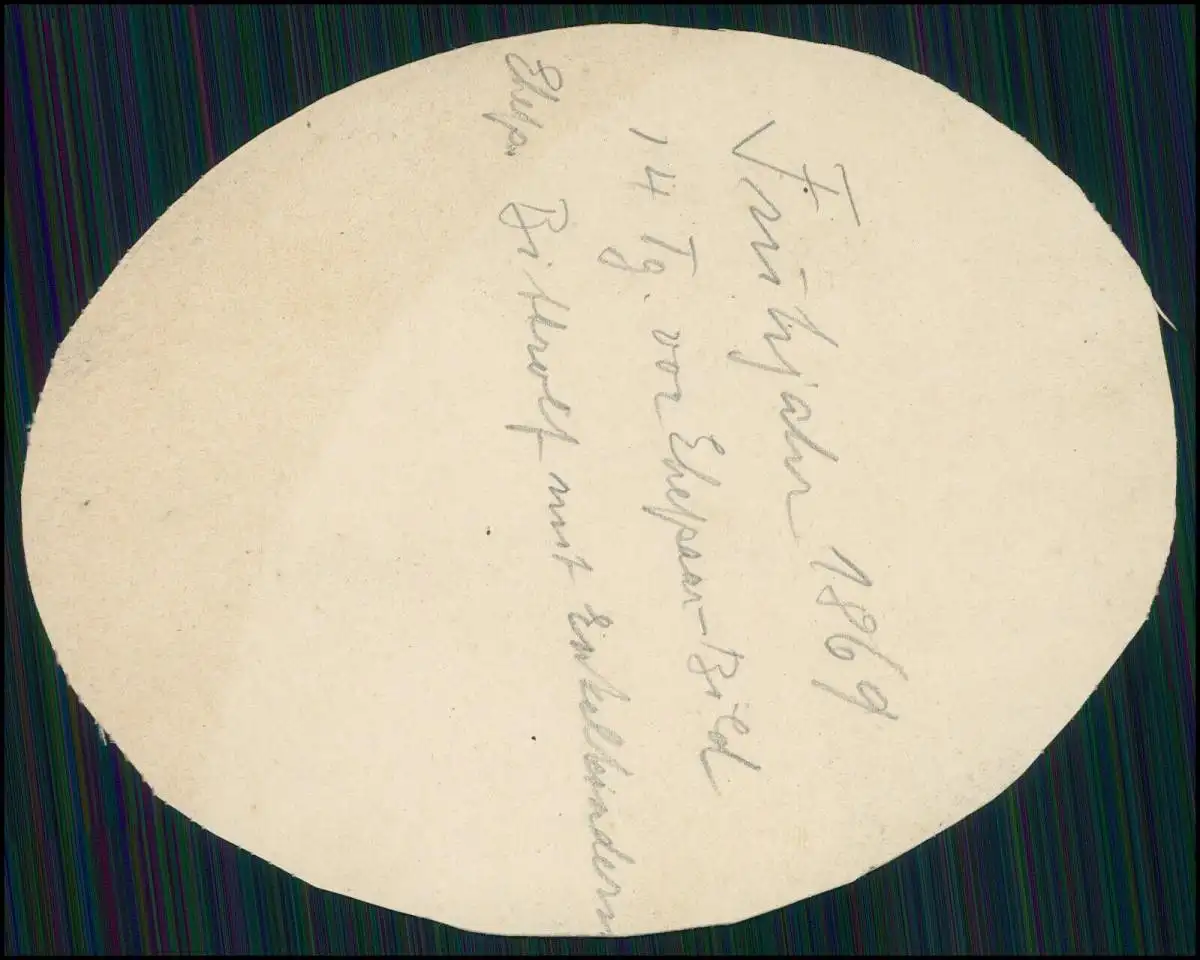 Frühjahr 1869
14 Tg. vor Ehepaar-Bild
Ehep. Bittrolf mit Enkelkindern